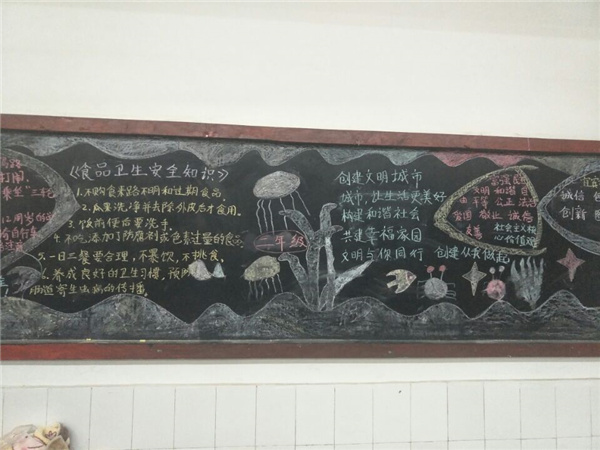 《食品卫生安全知识》
1.不购食来路不明和过期食品
2.瓜果洗净并去除外皮后才食用。
3.饭前便后要洗手.
4.不吃添加了防腐剂或色素过量的食
5.一日三餐要合理,不暴饮,不挑食.
6.养成良好的卫生习惯,预防
肠道寄生虫病的传播.
二年级
创建文明城市
城市,让生活更美好
构建和谐社会
共建幸福家园
文明与你同行
创建从我做起
富强民主
文明 和谐 自
由 平等 公正 法
爱国 敬业 诚信
友善
社会主义核
心价值观
诚信
创新